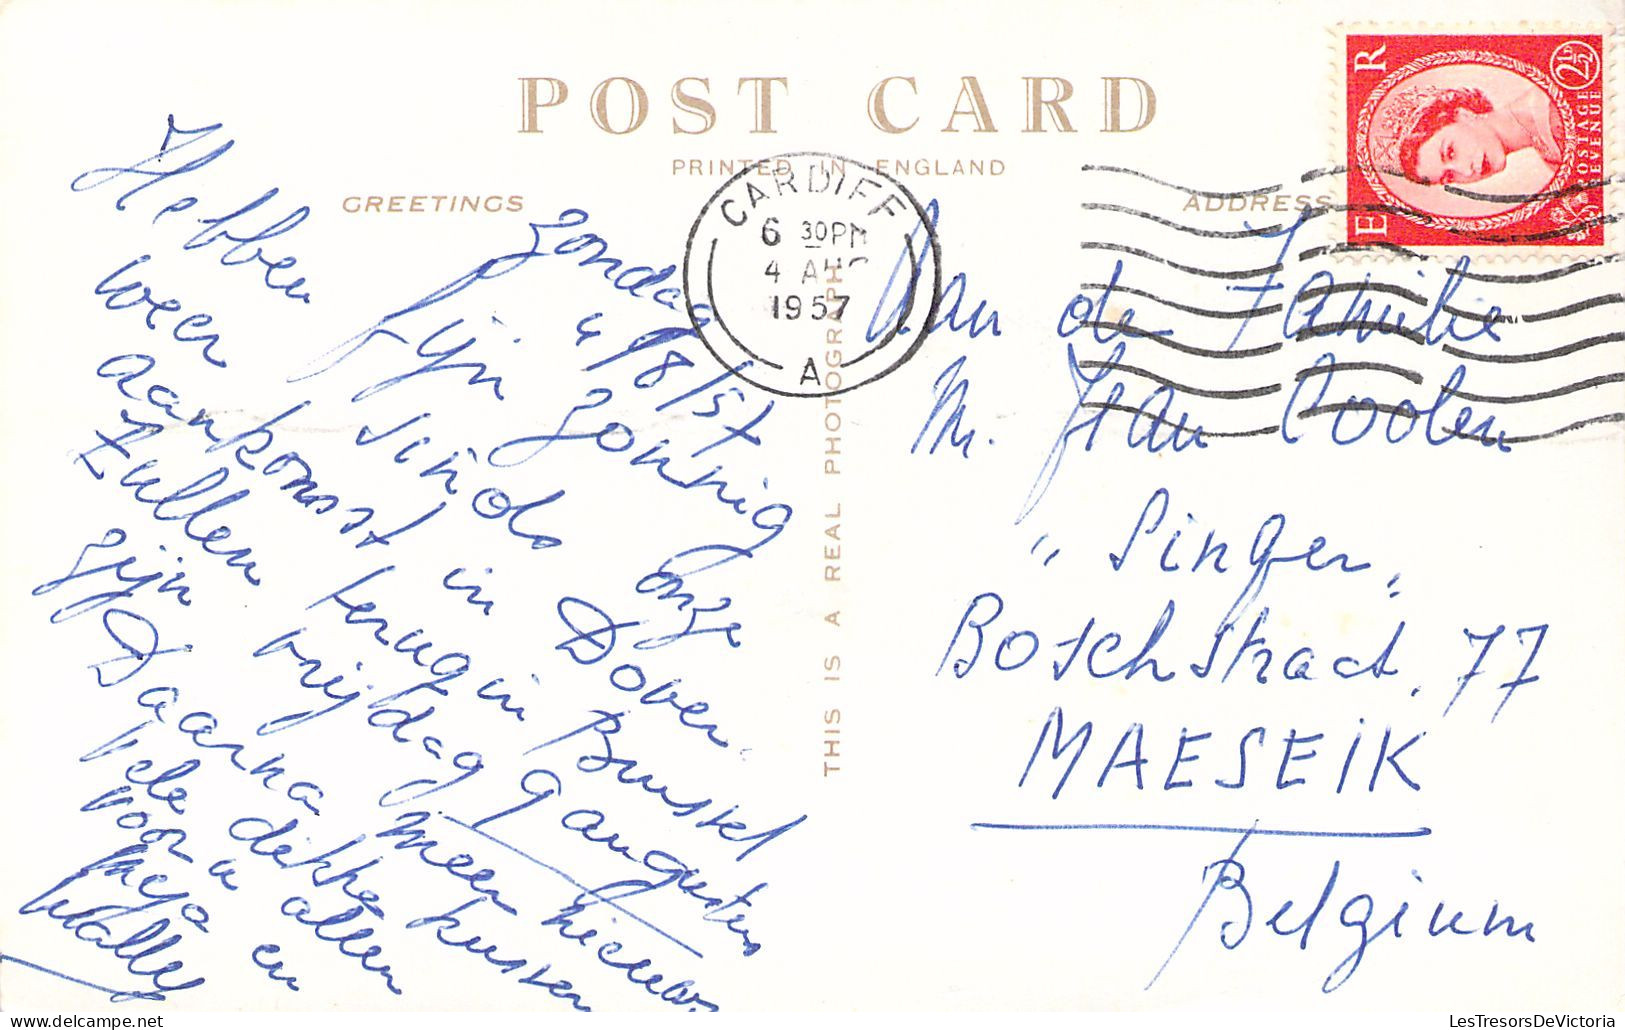 POST CARD
PRINTED IN ENGLAND
GREETINGS
ADDRESS
THIS IS A REAL PHOTOGRAPH
E R
POSTAGE
REVENUE
2½D
CARDIFF
6 30PM
4 AUG
1957
A
Zondag
4/8/57
Hebben fijn zonnig
weer sinds onze
aankomst in Dover.
Zullen terug in Brussel
zijn vrijdag 9 augustus
Daarna meer nieuws.
Vele dikke kussen
voor u allen
Meja en
Wally
Aan de Familie
Mr. Jean Coolen
"Singer"
Boschstraat, 77
MAESEIK
Belgium
LesTresorsDeVictoria